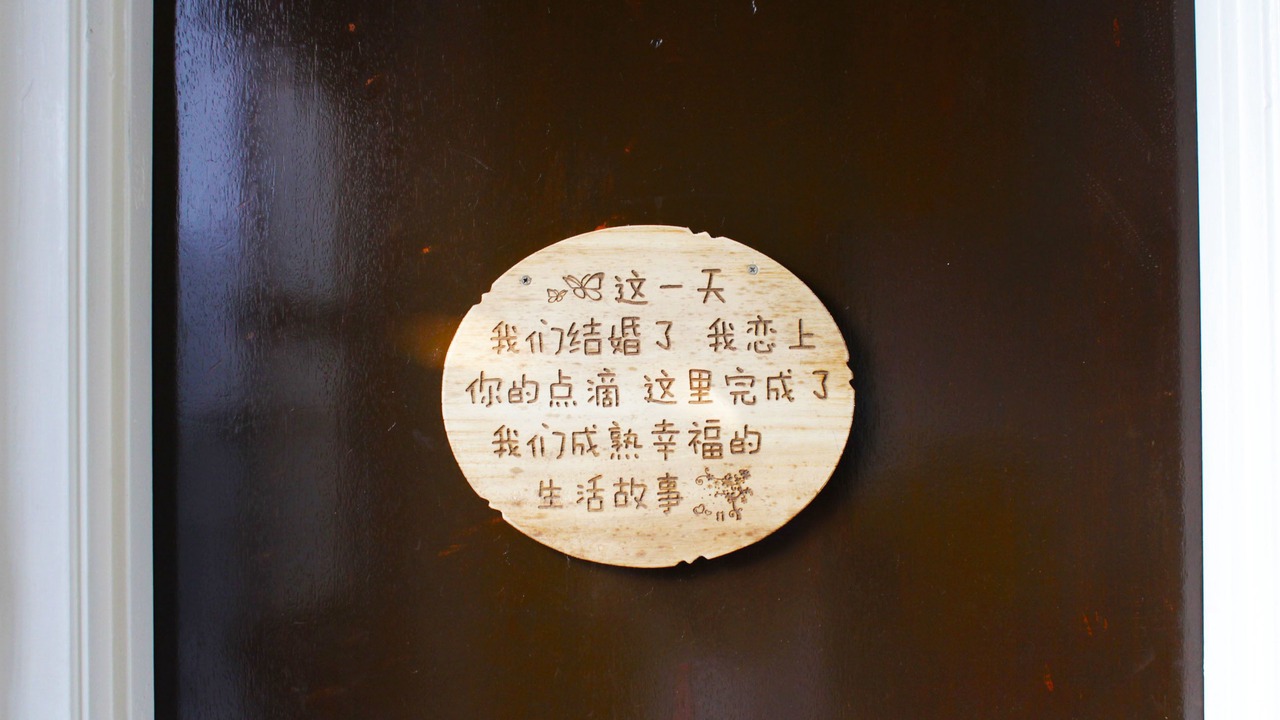 这一天
我们结婚了 我恋上
你的点滴 这里完成了
我们成熟幸福的
生活故事